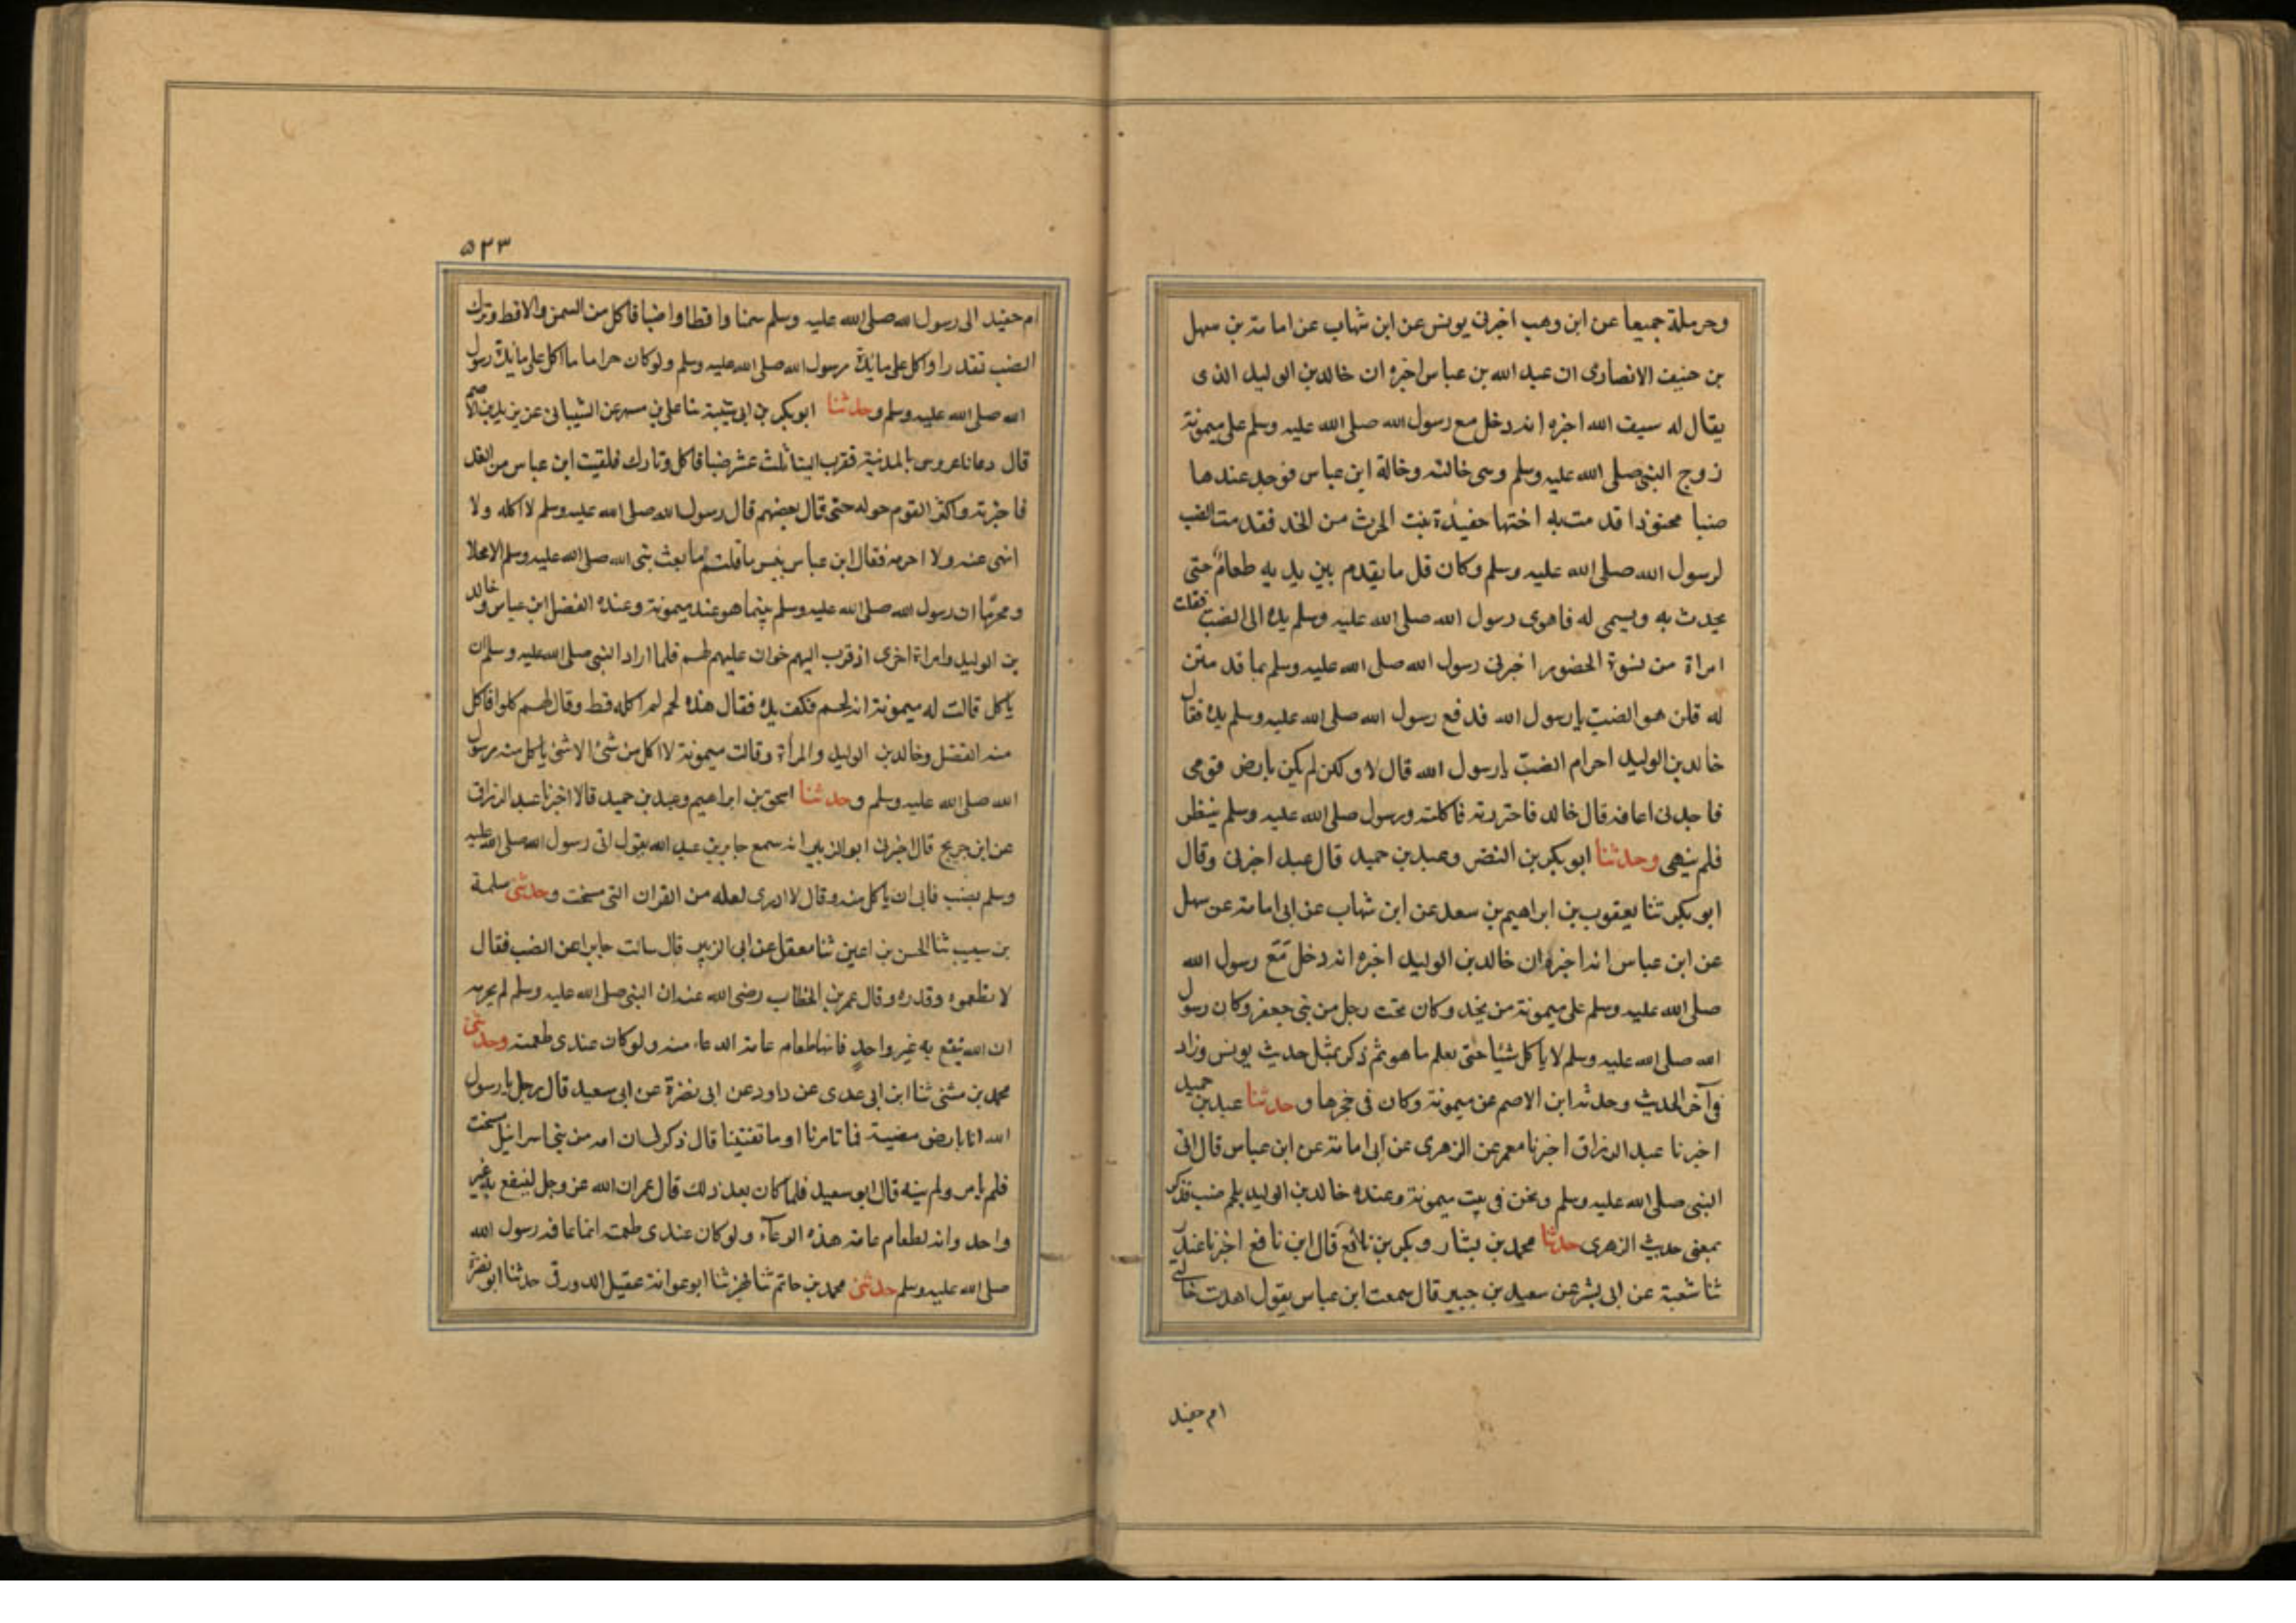 وحرملة جميعا عن ابن وهب اخبرنى يونس عن ابن شهاب عن امامة بن سهل
بن حنيف الانصارى ان عبد الله بن عباس اخبره ان خالد بن الوليد الذى
يقال له سيف الله اخبره انه دخل مع رسول الله صلى الله عليه وسلم على ميمونة
زوج النبى صلى الله عليه وسلم وهى خالته وخالة ابن عباس فوجد عندها
ضبا محنوذا قدمت به اختها حفيدة بنت الحرث من نجد فقدمت الضب
لرسول الله صلى الله عليه وسلم وكان قل ما يقدم بين يديه طعام حتى
يحدث به ويسمى له فاهوى رسول الله صلى الله عليه وسلم يده الى الضب فقالت
امراة من نسوة الحضور اخبرنى رسول الله صلى الله عليه وسلم بما قدمتن
له قلن هو الضب يا رسول الله فدفع رسول الله صلى الله عليه وسلم يده فقال
خالد بن الوليد احرام الضب يا رسول الله قال لا ولكن لم يكن بارض قومى
فاجدنى اعافه قال خالد فاجتررته فاكلته ورسول صلى الله عليه وسلم ينظر
فلم ينهى وحدثنا ابو بكر بن النضر وعبد بن حميد قال عبد اخبرنى وقال
ابو بكر ثنا يعقوب بن ابراهيم بن سعد عن ابن شهاب عن ابى امامة عن سهل
عن ابن عباس انه اخبره ان خالد بن الوليد اخبره انه دخل مع رسول الله
صلى الله عليه وسلم على ميمونة من نجد وكان تحت رجل من بنى جعفر وكان رسول
الله صلى الله عليه وسلم لا ياكل شيئا حتى يعلم ما هو ثم ذكر بمثل حديث يونس وزاد
فى آخر الحديث وحدثه ابن الاصم عن ميمونة وكان فى حجرها وحدثنا عبد بن حميد
اخبرنا عبد الرزاق اخبرنا معمر عن الزهرى عن ابى امامة عن ابن عباس قال اتى
النبى صلى الله عليه وسلم ونحن فى بيت ميمونة وعنده خالد بن الوليد بلحم ضب فذكر
بمعنى حديث الزهرى حدثنا محمد بن بشار وبكر بن نافع قال ابن نافع اخبرنا غندر
ثنا شعبة عن ابى بشر عن سعيد بن جبير قال سمعت ابن عباس يقول اهدت خالتى
ام حفيد
۵۲۳
ام حفيد الى رسول الله صلى الله عليه وسلم سمنا واقطا واضبا فاكل من السمن والاقط وترك
الضب تقذرا واكل على مائدة رسول الله صلى الله عليه وسلم ولو كان حراما ما اكل على مائدة رسول
الله صلى الله عليه وسلم وحدثنا ابو بكر بن ابى شيبة ثنا على بن مسهر عن الشيبانى عن يزيد بن الاصم
قال دعانا عروس بالمدينة فقرب الينا ثلث عشر ضبا فاكل وتارك فلقيت ابن عباس من الغد
فاخبرته واكثر القوم حوله حتى قال بعضهم قال رسول الله صلى الله عليه وسلم لا اكله ولا
انهى عنه ولا احرمه فقال ابن عباس بئس ما قلتم ما بعث نبى الله صلى الله عليه وسلم الا محلا
ومحرما ان رسول الله صلى الله عليه وسلم بينما هو عند ميمونة وعنده الفضل ابن عباس وخالد
بن الوليد وامراة اخرى اذ قرب اليهم خوان عليهم لحم فلما اراد النبى صلى الله عليه وسلم ان
ياكل قالت له ميمونة انه لحم فكف يده فقال هذه لحم لم اكله قط وقال لهم كلوا فاكل
منه الفضل وخالد بن الوليد والمرأة وقالت ميمونة لا اكل من شئ الا شئ ياكل منه رسول
الله صلى الله عليه وسلم وحدثنا اسحق بن ابراهيم وعبد بن حميد قالا اخبرنا عبد الرزاق
عن ابن جريج قال اخبرنى ابو الزبير انه سمع جابر بن عبد الله يقول اتى رسول الله صلى الله عليه
وسلم بضب فابى ان ياكل منه وقال لا ادرى لعله من القران التى مسخت وحدثنى سلمة
بن سبيب ثنا الحسن بن اعين ثنا معقل عن ابى الزبير قال سالت جابرا عن الضب فقال
لا تطعموه وقذره وقال عمر بن الخطاب رضى الله عنه ان النبى صلى الله عليه وسلم لم يحرمه
ان الله ينفع به غير واحد فانما طعام عامة الدعاء منه ولو كان عندى طعمته وحدثنى
محمد بن مثنى ثنا ابن ابى عدى عن داود عن ابى نضرة عن ابى سعيد قال رجل يا رسول
الله انا بارض مضبة فما تامرنا او ما تفتينا قال ذكر لسان امة من بنى اسرائيل مسخت
فلم يامر ولم ينه قال ابو سعيد فلما كان بعد ذلك قال عمر ان الله عز وجل لينفع به غير
واحد وانه لطعام عامة هذه الرعآء ولو كان عندى طعمته انما عافه رسول الله
صلى الله عليه وسلم حدثنى محمد بن حاتم ثنا بهز ثنا ابو عوانة عقيل الدورقى حدثنا ابو نضرة